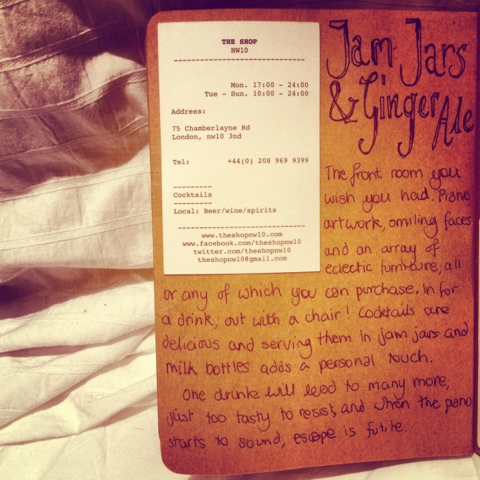 THE SHOP
NW10
Mon. 17:00 - 24:00
Tue - Sun. 10:00 - 24:00
Address:
75 Chamberlayne Rd
London, nw10 3nd
Tel: +44(0) 208 969 9399
Cocktails
Local: Beer/wine/spirits
www.theshopnw10.com
www.facebook.com/theshopnw10
twitter.com/theshopnw10
theshopnw10@gmail.com
Jam Jars
& Ginger
Ale
The front room you
wish you had. Piano
artwork, smiling faces
and an array of
eclectic furniture, all
or any of which you can purchase. In for
a drink, out with a chair! Cocktails are
delicious and serving them in jam jars and
milk bottles adds a personal touch.
One drink will lead to many more,
just too tasty to resist, and when the piano
starts to sound, escape is futile.